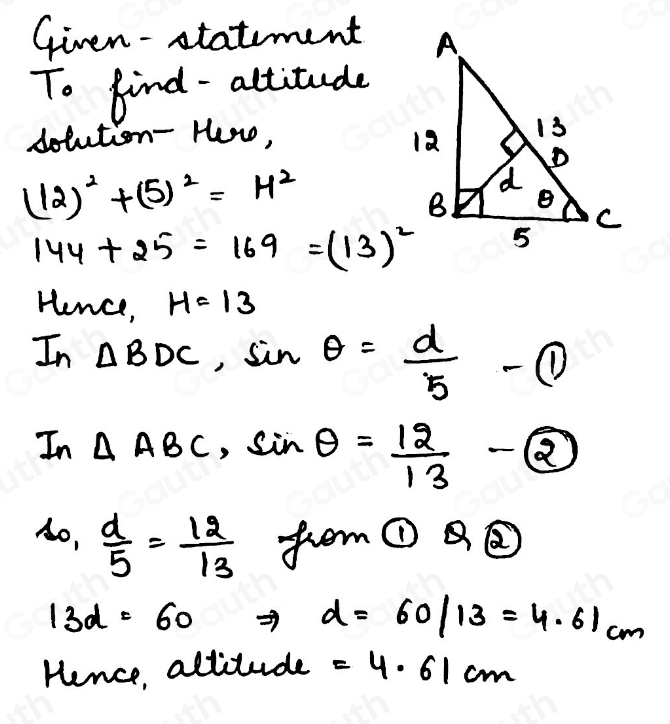 Given - statement
To find - altitude
Solution - Here,
(12)² + (5)² = H²
144 + 25 = 169 = (13)²
Hence, H = 13
In Δ BDC, sin θ = d/5 - ①
In Δ ABC, sin θ = 12/13 - ②
So, d/5 = 12/13 from ① & ②
13d = 60 ⇒ d = 60/13 = 4.61 cm
Hence, altitude = 4.61 cm
A
12
13
D
d
θ
B
C
5
Gauth